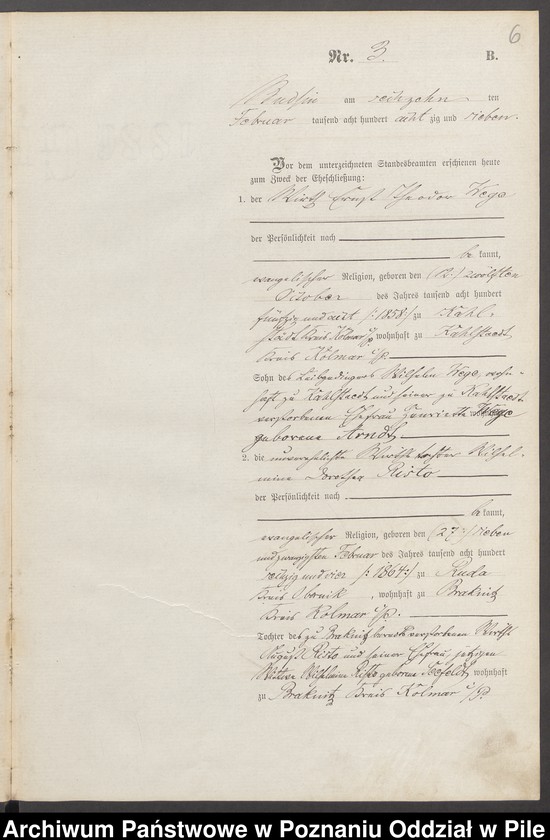 6
Nr. 3. B.
Budsin am sechzehn ten
Februar tausend acht hundert acht zig und sieben.
Vor dem unterzeichneten Standesbeamten erschienen heute
zum Zweck der Eheschließung:
1. der Wirth Ernst Theodor Wege
der Persönlichkeit nach
be kannt,
evangelischer Religion, geboren den (12.) zwölften
October des Jahres tausend acht hundert
fünfzig und acht /:1858:/ zu Kahl-
städt Kreis Kolmar i/p. wohnhaft zu Kahlstaedt
Kreis Kolmar i/p.
Sohn des Leibgedingers Wilhelm Wege, wohn-
haft zu Kahlstaedt und seiner zu Kahlstaedt
verstorbenen Ehefrau Henriette Wege
geborene Arndt
2. die unverehelichte Wirthstochter Wilhel-
mine Dorothea Risto
der Persönlichkeit nach
be kannt,
evangelischer Religion, geboren den (27:) sieben
und zwanzigsten Februar des Jahres tausend acht hundert
sechzig und vier /:1864:/ zu Ruda
Kreis Obornik, wohnhaft zu Braknitz
Kreis Kolmar i/p.
Tochter des zu Braknitz verstorbenen Wirths
August Risto und seiner Ehefrau, jetzigen
Wittwe Wilhelmine Risto geborene wohnhaft
zu Braknitz Kreis Kolmar i/p.
Archiwum Państwowe w Poznaniu Oddział w Pile